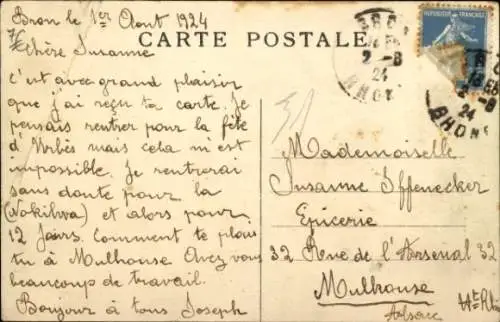 Bron le 1er Aout 1924
CARTE POSTALE
Chère Suzanne
C'est avec grand plaisir
que j'ai reçu ta carte. Je
pensais rentrer pour la fête
d'Urbès mais cela m'est
impossible. Je rentrerai
sans doute pour la
(Nokilwa) et alors pour
12 Jours. Comment te plais
tu à Mulhouse Avez vous
beaucoup de travail.
Bonjour à tous Joseph
REPUBLIQUE FRANÇAISE
BRON
2 -8
24
RHONE
-8
24
RHONE
Mademoiselle
Susanne Iffenecker
Epicerie
32 Rue de l'Arsenal 32
Mulhouse
Alsace
Ht Rh